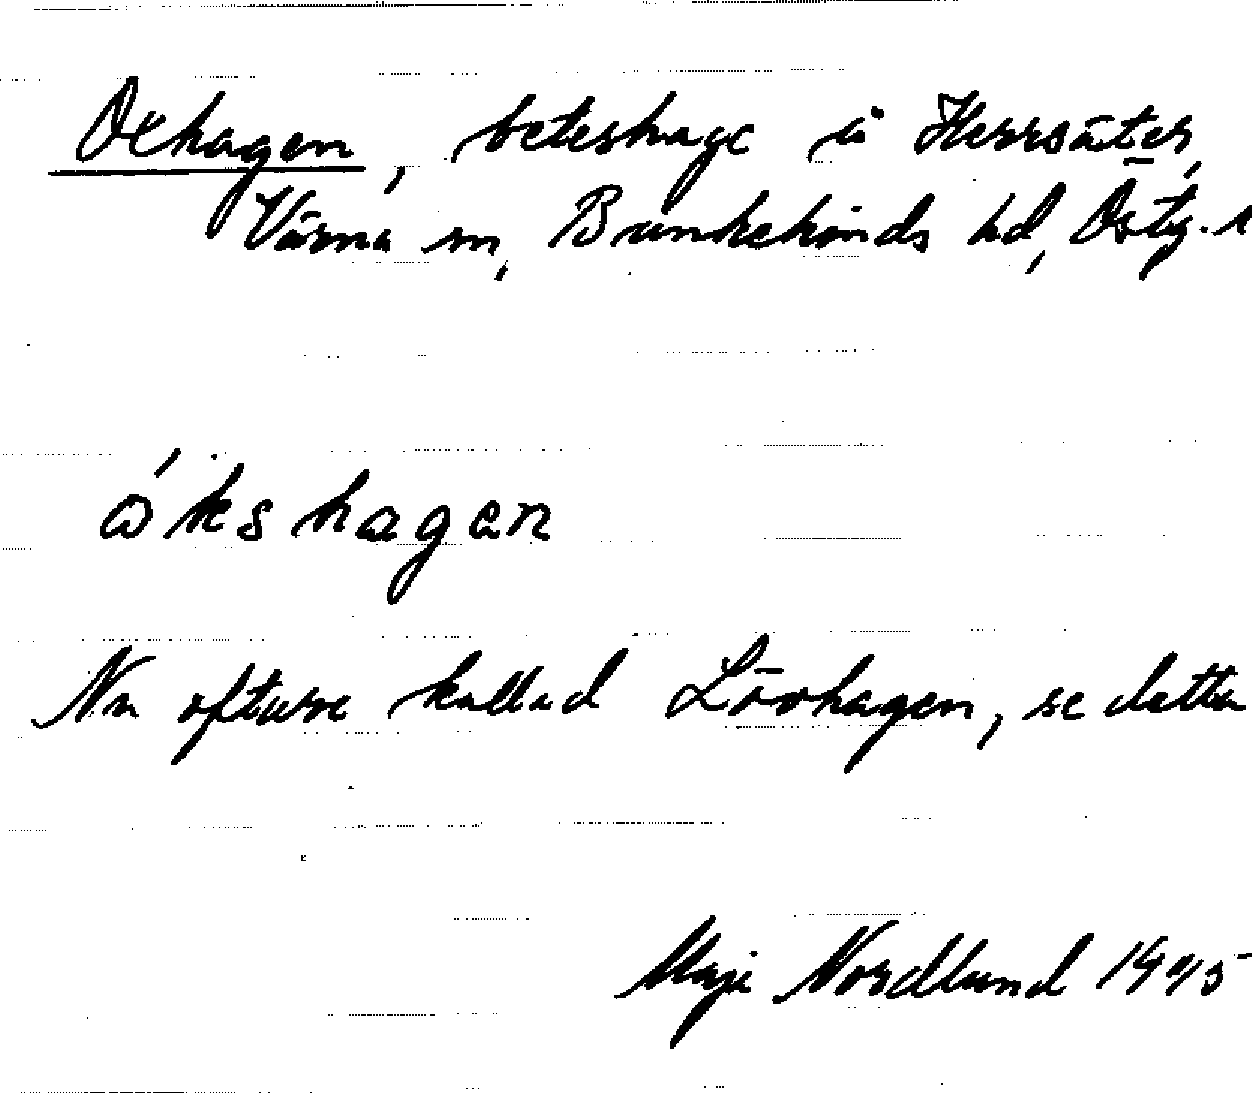 Oxhagen, beteshage å Herrsäter,
Värna sn, Bankekinds hd, Östg. l
ókshagen
Nu oftare kallad Lövhagen, se detta
Maje Nordlund 1945